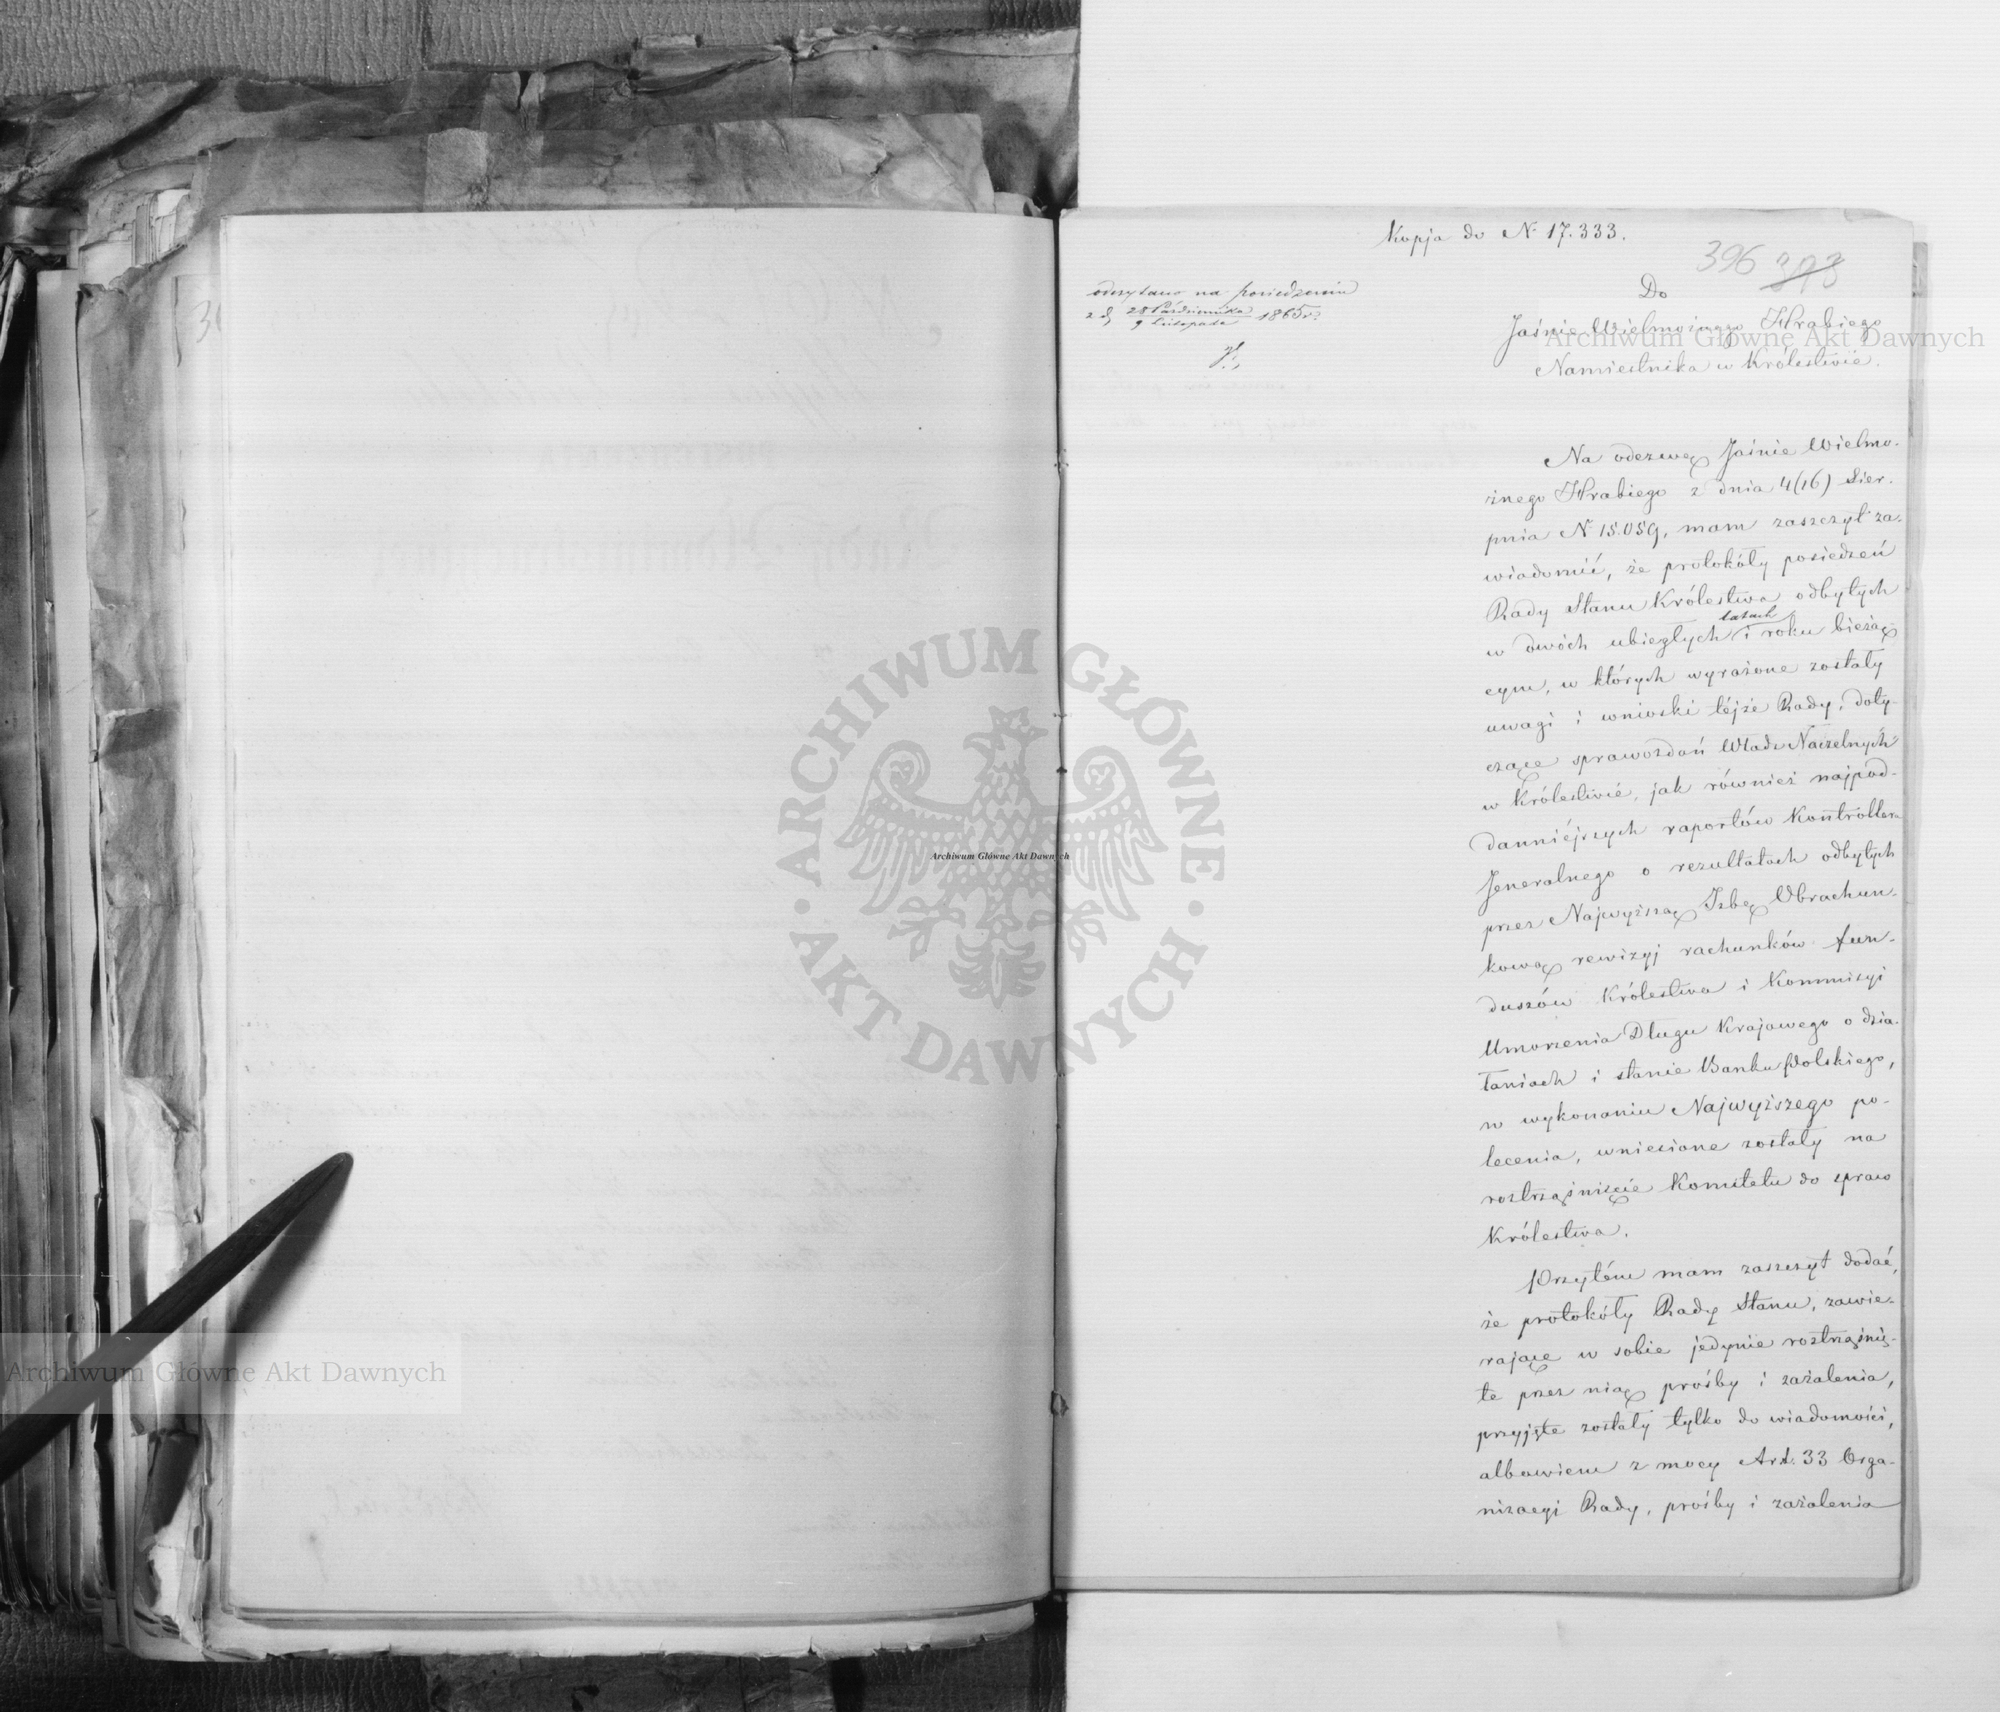 Kopja do N. 17.333.
396 373
odczytano na posiedzeniu
z d. 28 Października 1865 r.
9 Listopada
Do
Jaśnie Wielmożnego Hrabiego
Namiestnika w Królestwie.
Na odezwę Jaśnie Wielmo-
żnego Hrabiego z dnia 4 (16) Sier-
pnia N. 15.059, mam zaszczyt za-
wiadomić, że protokóły posiedzeń
Rady Stanu Królestwa odbytych
latach
w dwóch ubiegłych i roku bieżą-
cym, w których wyrażone zostały
uwagi i wnioski téjże Rady, doty-
czące sprawozdań Władz Naczelnych
w Królestwie, jak również najpod-
danniéjszych raportów Kontrollera
Jeneralnego o rezultatach odbytych
przez Najwyższą Izbę Obrachun-
kową rewizyj rachunków fun-
duszów Królestwa i Kommissyi
Umorzenia Długu Krajowego o dzia-
łaniach i stanie Banku Polskiego,
w wykonaniu Najwyższego po-
lecenia, wniesione zostały na
roztrząśnięcie Komitetu do spraw
Królestwa.
Przytém mam zaszczyt dodać,
że protokóły Rady Stanu, zawie-
rające w sobie jedynie roztrząśnię-
te przez nią prośby i zażalenia,
przyjęte zostały tylko do wiadomości,
albowiem z mocy Art. 33 Orga-
nizacyi Rady, prośby i zażalenia
Archiwum Główne Akt Dawnych
ARCHIWUM GŁÓWNE
· AKT DAWNYCH ·
Archiwum Główne Akt Dawnych
Archiwum Główne Akt Dawnych